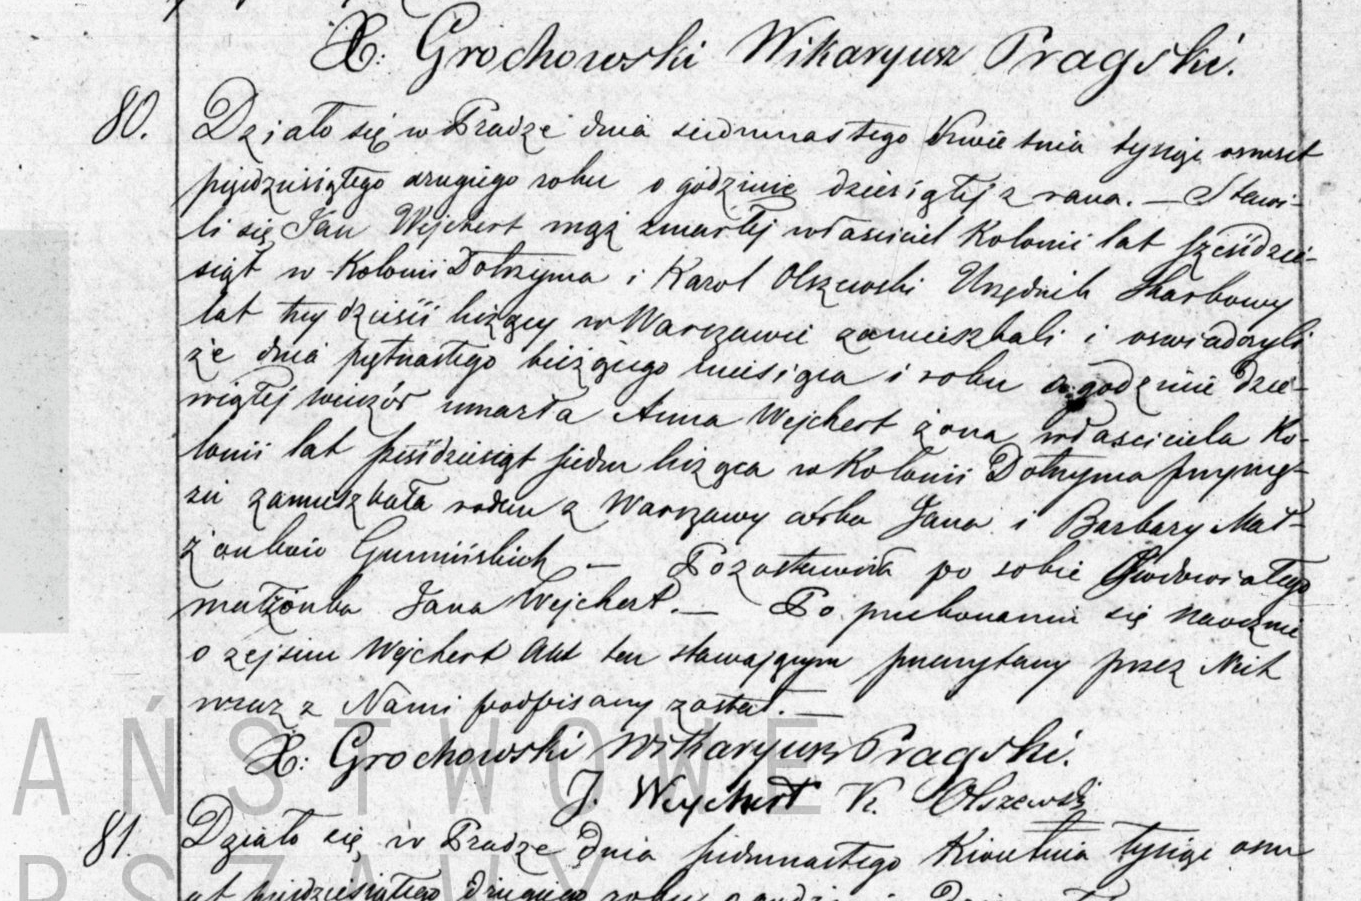 X. Grochowski Wikaryusz Pragski.
80. Działo się w Pradze dnia siedmnastego Kwietnia tysiąc ośmset
pięćdziesiątego drugiego roku o godzinie dziesiątej z rana. — Stawi-
li się Jan Wejchert mąż zmarłej właściciel Kolonii lat sześćdzie-
siąt w Kolonii Dotrzyma i Karol Olszewski Urzędnik Skarbowy
lat trzydzieści liczący w Warszawie zamieszkali i oświadczyli
że dnia piętnastego bieżącego miesiąca i roku o godzinie dzie-
wiątej wieczór umarła Anna Wejchert żona właściciela Ko-
lonii lat sześćdziesiąt siedm licząca w Kolonii Dotrzyma przy mę-
żu zamieszkała rodem z Warszawy córka Jana i Barbary Mał-
żonków Gumińskich — Pozostawiła po sobie Owdowiałego
małżonka Jana Wejchert. — Po przekonaniu się naocznie
o zejściu Wejchert Akt ten stawającym przeczytany przez Nich
wraz z Nami podpisany został. —
X: Grochowski Wikaryusz Pragski.
J. Wejchert K. Olszewski
81. Działo się w Pradze dnia siedmnastego Kwietnia tysiąc ośm
set pięćdziesiątego drugiego roku o godzinie
AŃSTWOWE
RSZAWY